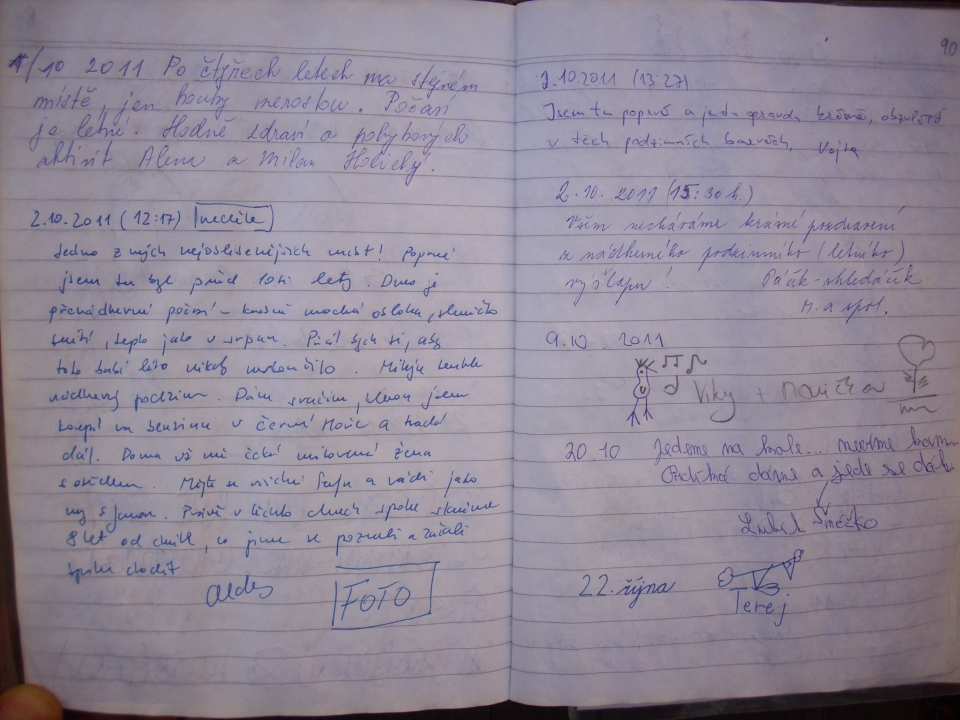 1/10 2011 Po čtyřech letech na stejném
místě, jen houby nerostou. Počasí
je letní. Hodně zdraví a pohybových
aktivit Alena a Milan
2.10.2011 (12:17) neděle
Jedno z mých nejoblíbenějších míst! Poprvé
jsem tu byl před 10ti lety. Dnes je
přenádherné počasí – krásně modrá obloha, sluníčko
svítí, teplo jako v srpnu. Přál bych si, aby
toto babí léto nikdy neskončilo. Miluju tenhle
nádherný podzim. Dám svačinu, kterou jsem
koupil na benzínu v Černé Hoře a hurá
dál. Doma už mě čeká milovaná žena
s obědem. Mějte se všichni fajn a rádi jako
my s Janou. Právě v těchto dnech spolu slavíme
8 let od chvíle, co jsme se poznali a začali
spolu chodit
FOTO
90
2.10.2011 (13:27)
Jsem tu poprvé a je to opravdu krásné, obzvláště
v těch podzimních barvách, Vojta
2.10.2011 (15:30 h.)
Všem necháváme krásné pozdravení
z nádherného podzimního (letního)
výšlapu!
M. a spol.
9.10. 2011
Viky +
20.10 Jedeme na kole...
dáme a jede se dál
22. října
Terej